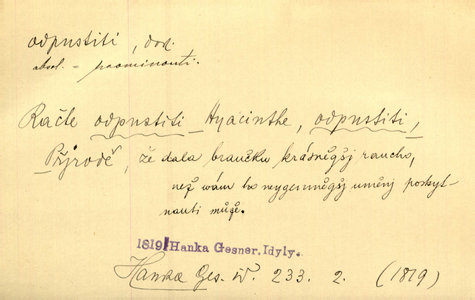 odpustiti, dok.
absol. – prominouti.
Račte odpustiti Hyacinthe, odpustiti,
Přjrodě, že dala braučku krásněgšj raucho,
než wám ho neygemněgšj uměnj poskyt-
nauti může.
1819/Hanka Gesner. Idyly.
Hanka Ges. W. 233. 2. (1819)